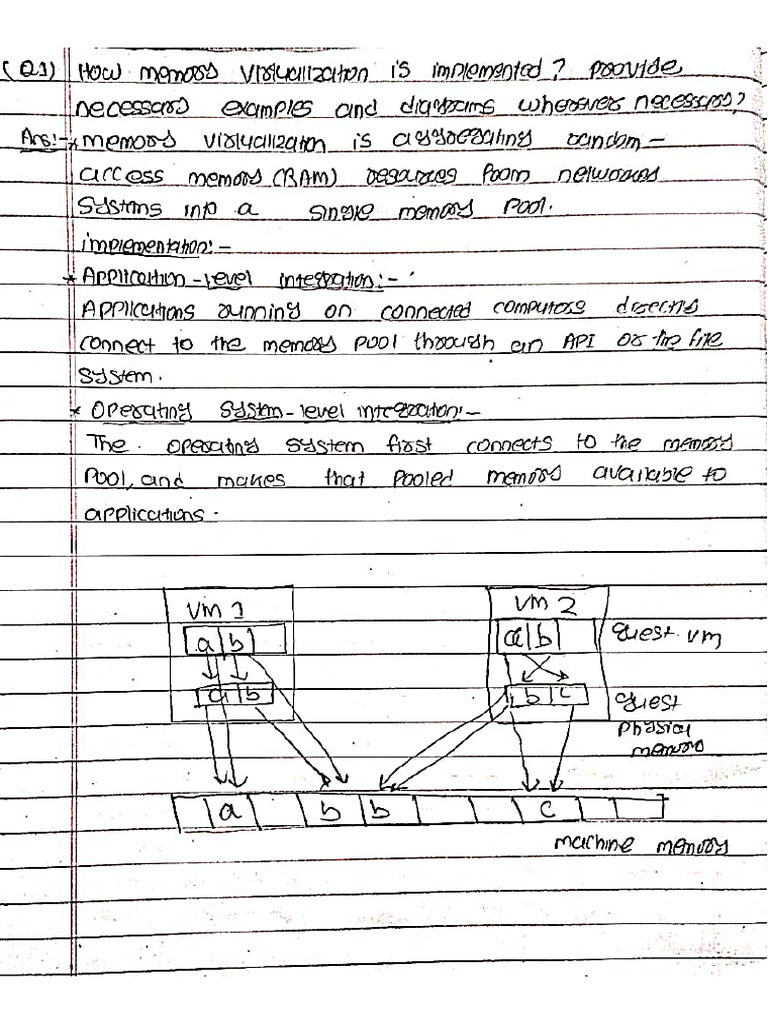 (Q1) How memory virtualization is implemented? provide
necessary examples and diagrams wherever necessary?
Ans:- * memory virtualization is aggregating random-
access memory (RAM) resources from networked
systems into a single memory pool.
implementation:-
* Application-level integration:-
Applications running on connected computers directly
connect to the memory pool through an API or the file
system.
* Operating system-level integration:-
The operating system first connects to the memory
pool, and makes that pooled memory available to
applications.
VM 1 VM 2
a b a b guest VM
a b b c guest
physical
memory
a b b c
machine memory